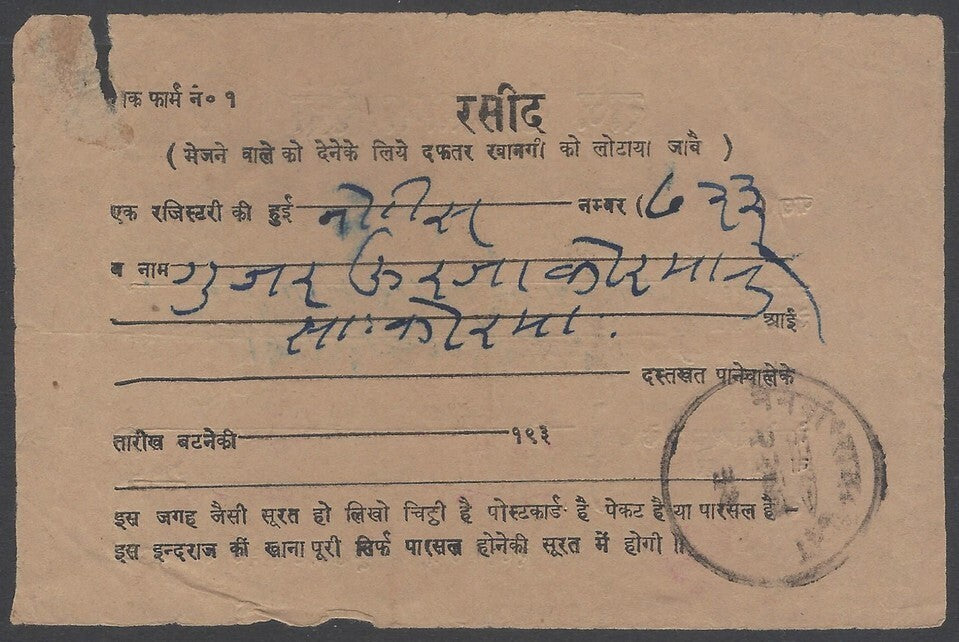 क फार्म नं० १
रसीद
( भेजने वाले को देनेके लिये दफतर रवानगी को लोटाया जावै )
एक रजिस्टरी की हुई नोटीस नम्बर ( ७२३
व नाम गुजर ऊरजा
सा. कोरमा. आई
दस्तखत पानेवालेके
तारीख बटनेकी १९३
इस जगह जैसी सूरत हो लिखो चिट्ठी है पोस्टकार्ड है पेकट है या पारसल है
इस इन्दराज कीं खाना पूरी सिर्फ पारसल होनेकी सूरत में होगी ॥